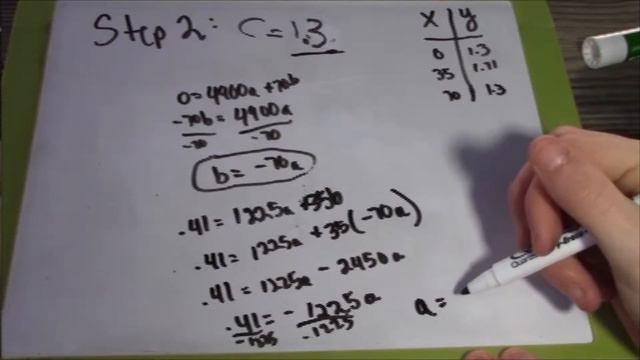 Step 2: C = 1.3
x y
0 1.3
35 1.71
70 1.3
0 = 4900a + 70b
-70b = 4900a
-70 -70
b = -70a
.41 = 1225a + 35b
.41 = 1225a + 35(-70a)
.41 = 1225a - 2450a
.41 = -1225a
-1225 -1225
a =